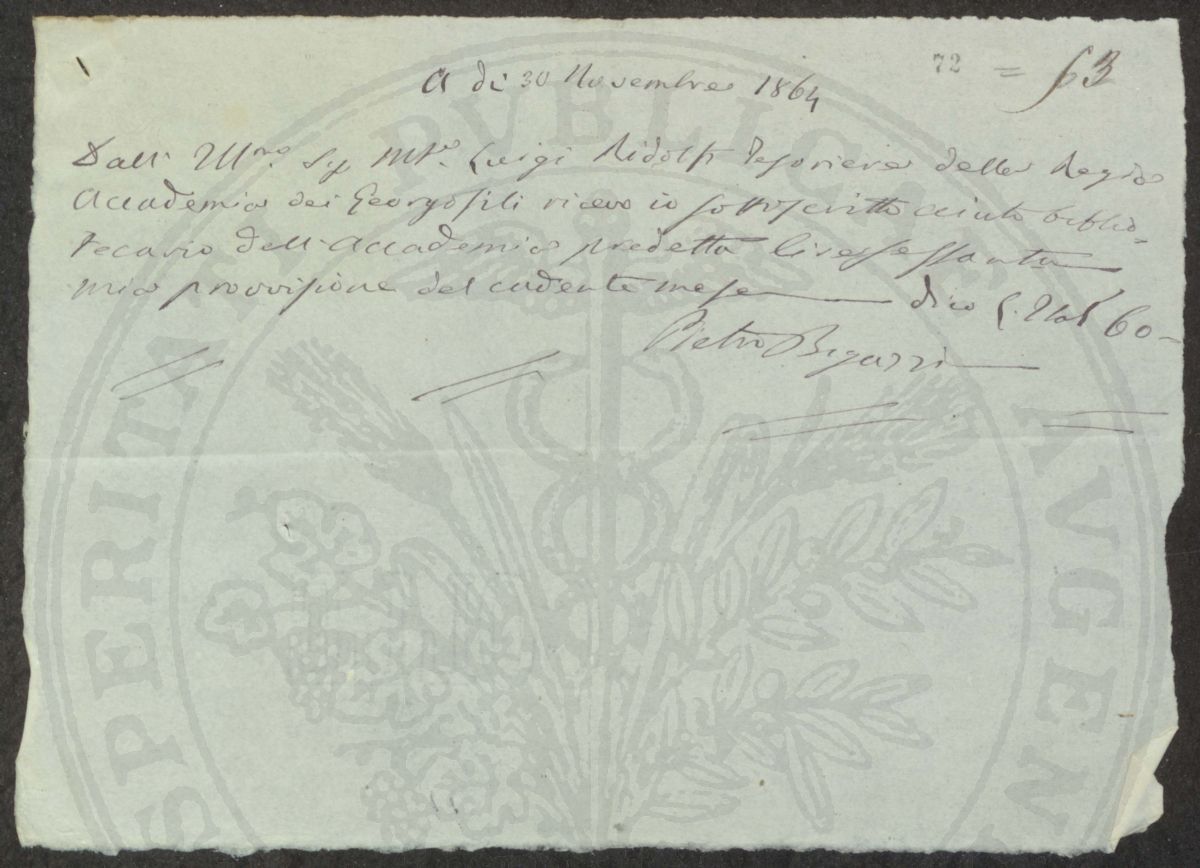 72 = 63
A di 30 Novembre 1864
Dall' Ill.mo Sg. M.se Luigi Ridolfi Tesoriere della Regia
Accademia dei Georgofili ricevo io sottoscritto aiuto biblio-
tecario dell'Accademia predetta lire sessanta
mia provvisione del cadente mese dico L. Ital. 60 -
Pietro Bigazzi
PROSPERITATI PUBLICAE AVGEN